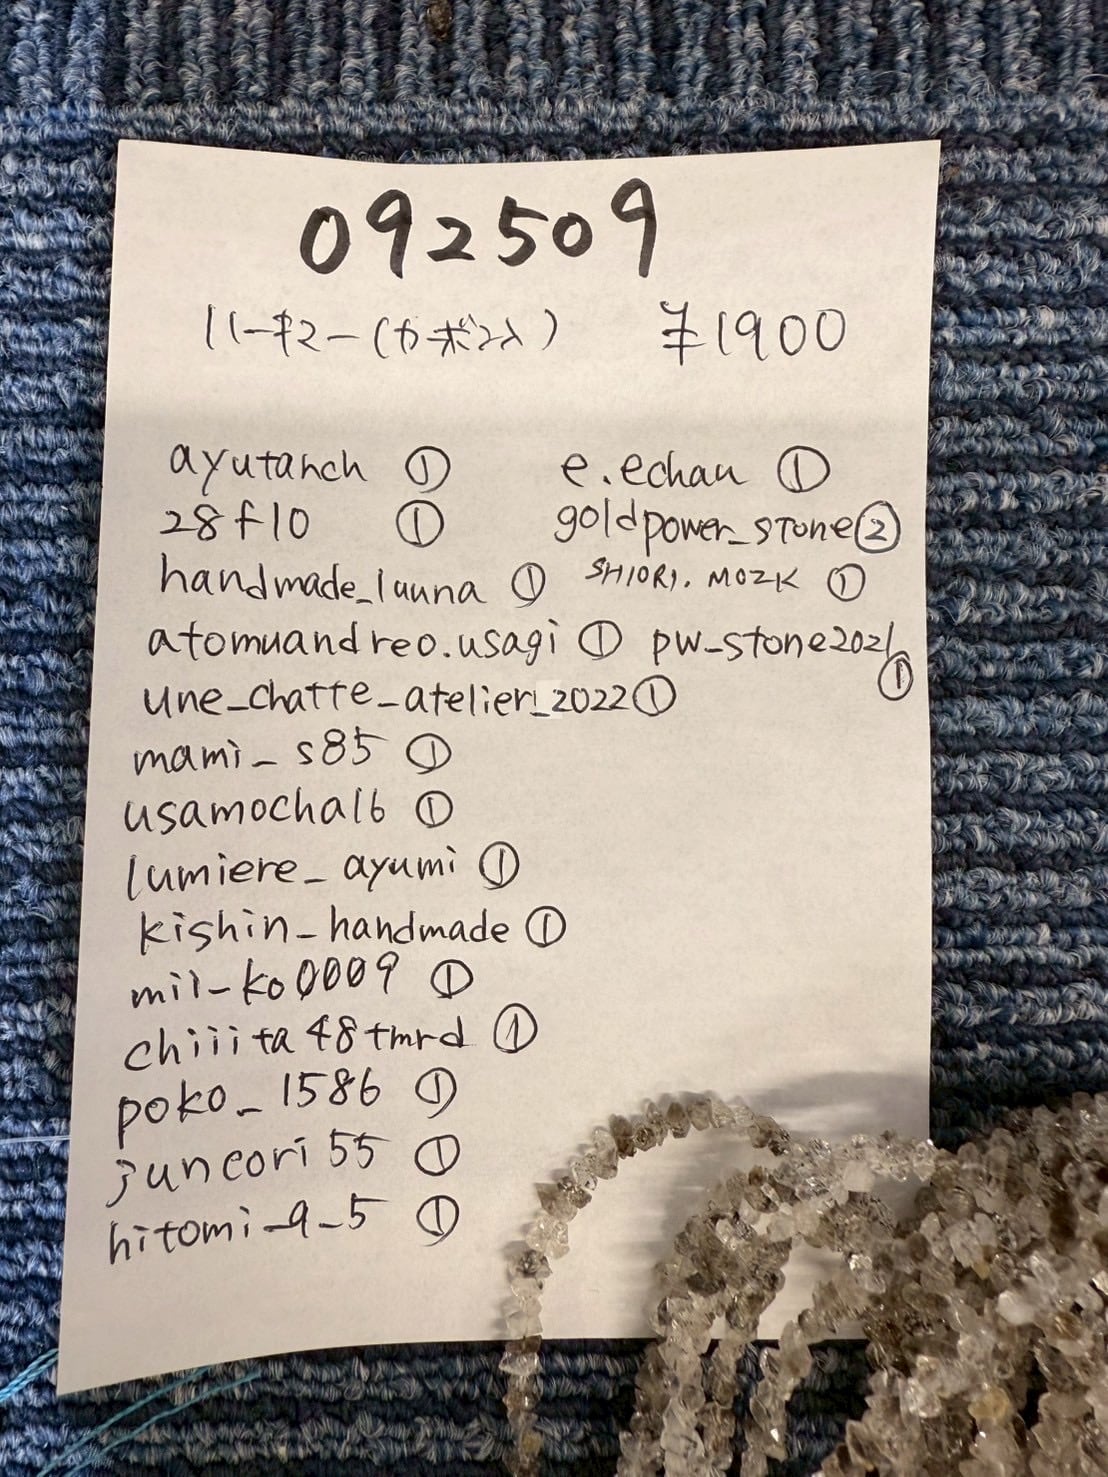 092509
ハーキマー(カボンス) ¥1900
ayutanch ①
28f10 ①
handmade_luuna ①
atomuandreo.usagi ①
une_chatte_atelier_2022 ①
mami_s85 ①
usamocha16 ①
lumiere_ayumi ①
kishin_handmade ①
mil_ko0009 ①
chiiita48tmrd ①
poko_1586 ①
juncori55 ①
hitomi_9_5 ①
e.echan ①
goldpower_stone ②
SHIORI.MOZK ①
pw_stone2021 ①